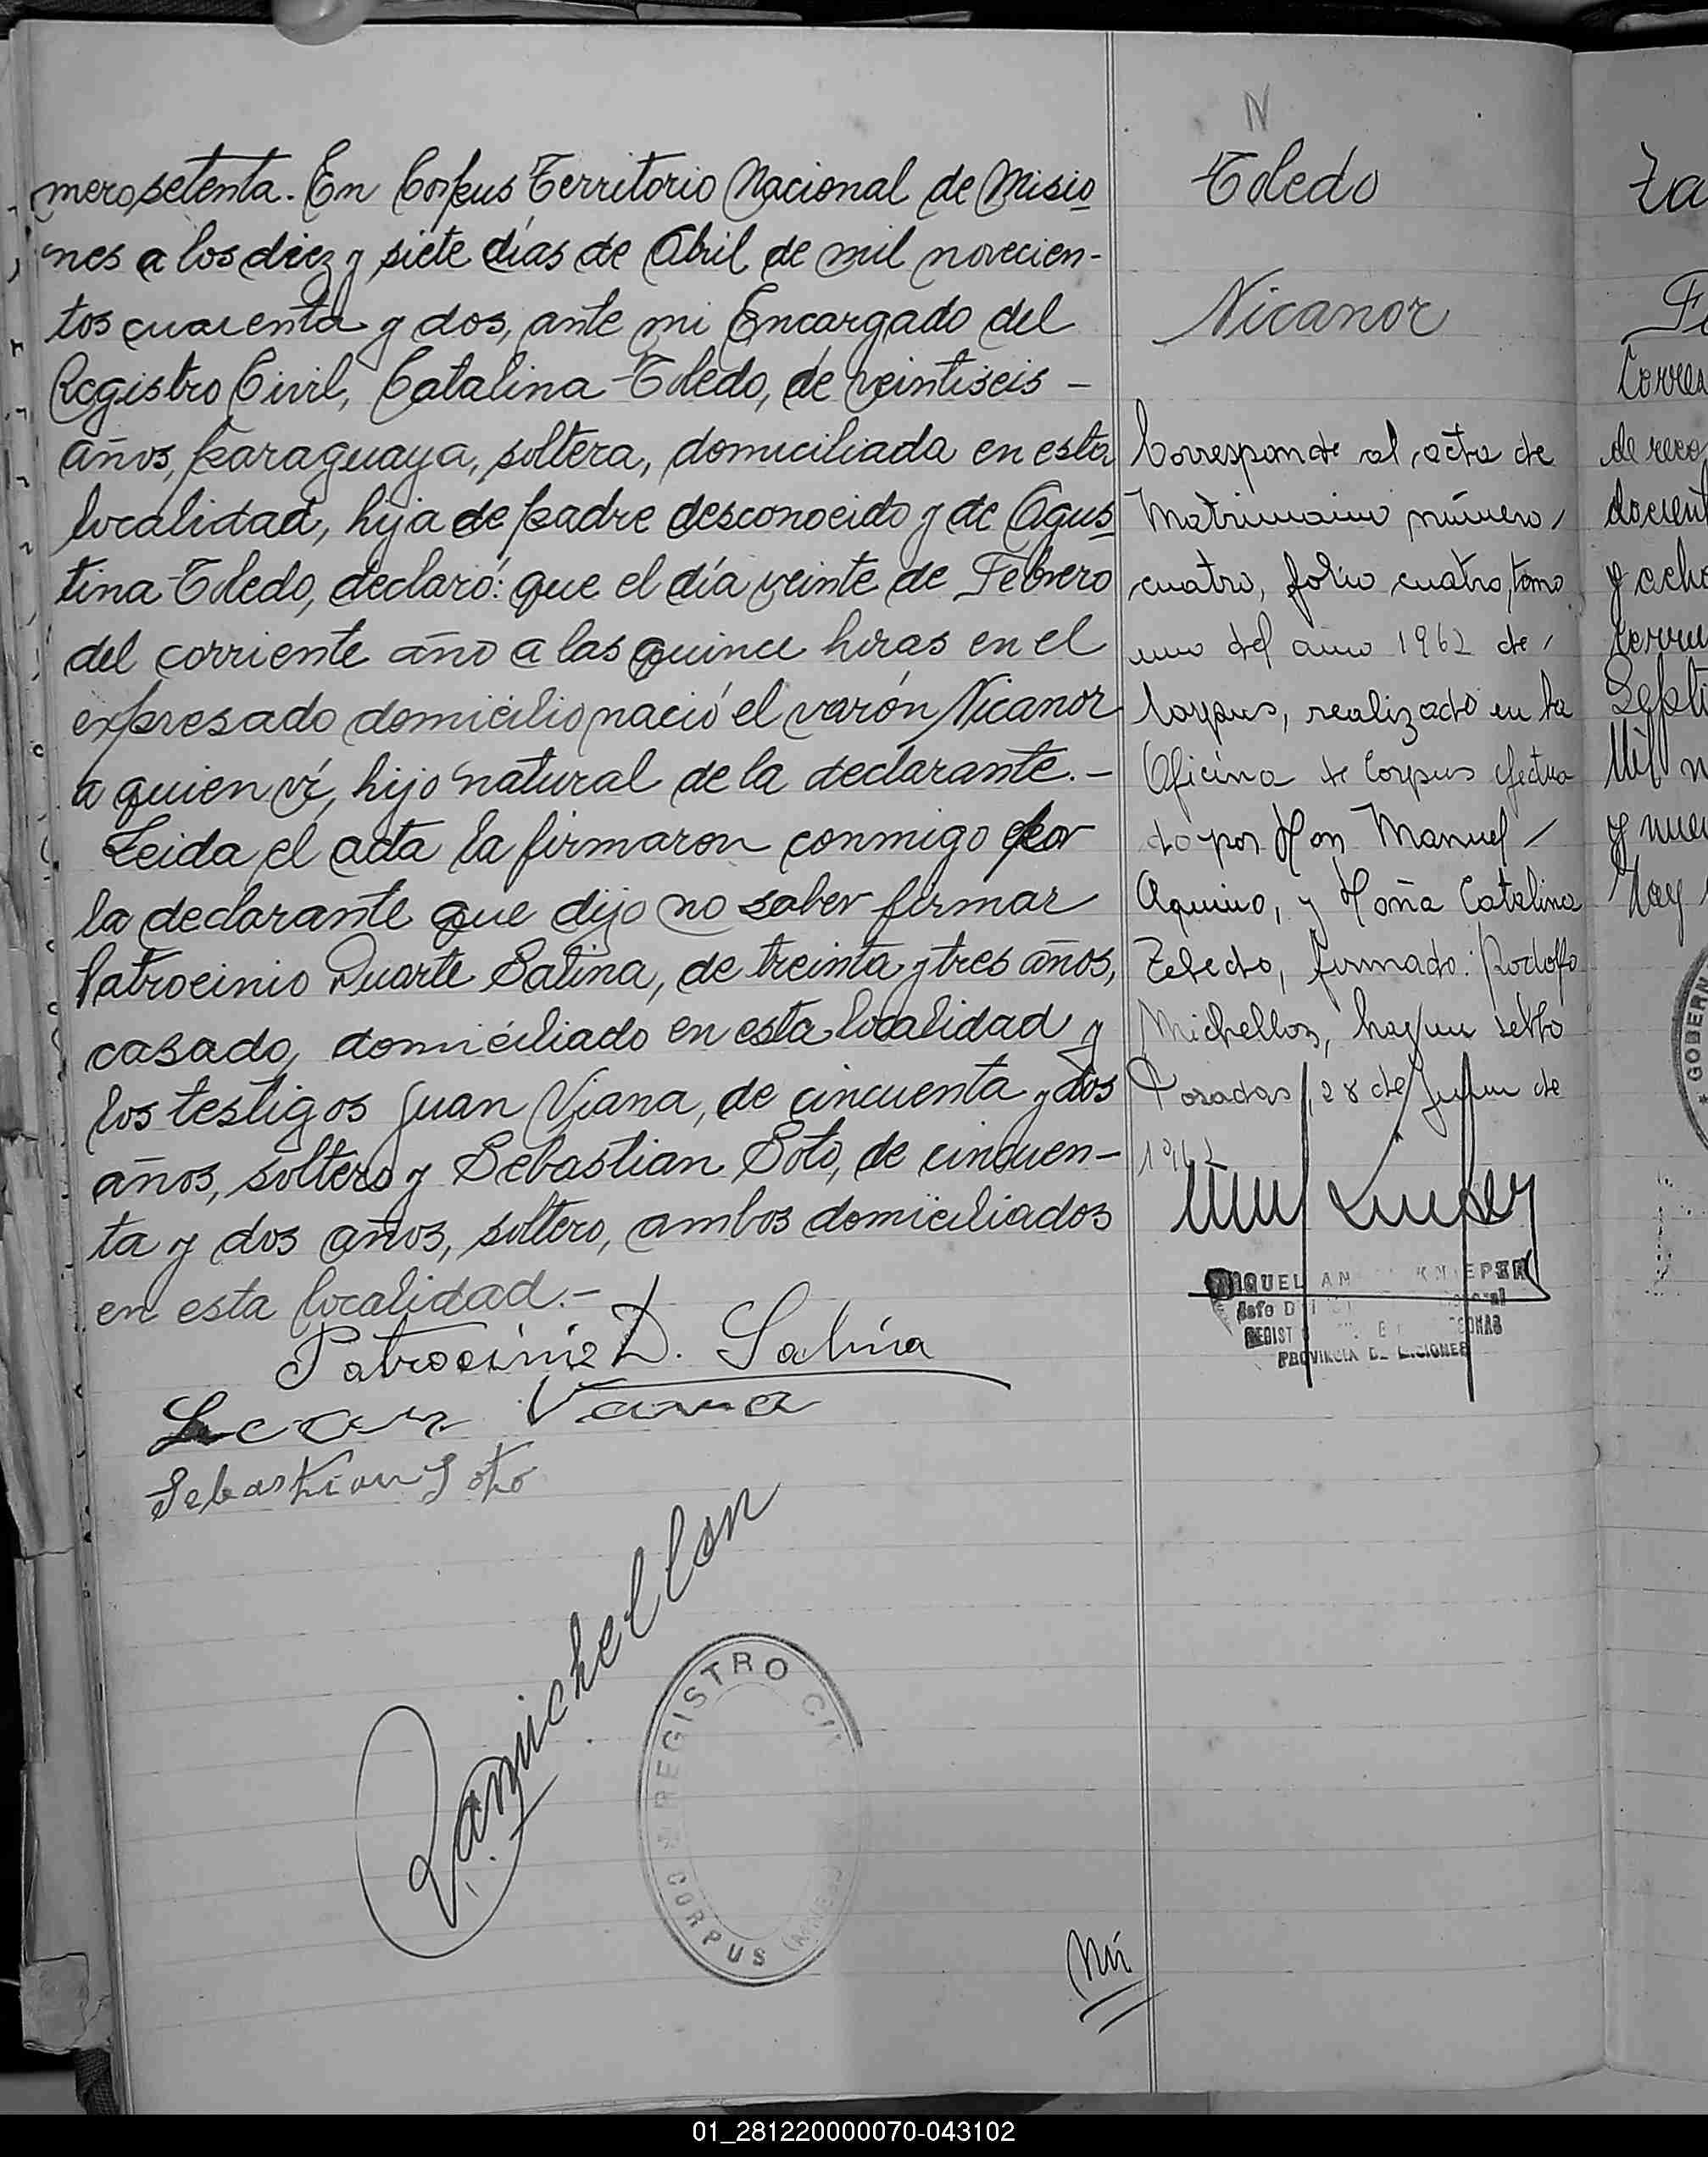 mero setenta. En Corpus Territorio Nacional de Misio
nes a los diez y siete días de Abril de mil novecien-
tos cuarenta y dos, ante mi Encargado del
Registro Civil, Catalina Toledo, de veintiseis -
años, paraguaya, soltera, domiciliada en esta
localidad, hija de padre desconocido y de Agus
tina Toledo, declaró: que el día veinte de Febrero
del corriente año a las quince horas en el
expresado domicilio nació el varón Nicanor
a quien ví, hijo natural de la declarante. -
Leida el acta la firmaron conmigo por
la declarante que dijo no saber firmar
Patrocinio Duarte Salina, de treinta y tres años,
casado, domiciliado en esta localidad y
los testigos Juan Viana, de cincuenta y dos
años, soltero y Sebastian Soto, de cincuen-
ta y dos años, soltero, ambos domiciliados
en esta localidad. -
Patrocinio D. Salina
Viana
Sebastian Soto
Ramichellon
REGISTRO CIV
CORPUS
N
Toledo
Nicanor
Corresponde al acta de
Matrimonio número /
cuatro, folio cuatro, tomo
uno del año 1962 de /
Corpus, realizado en la
Oficina de Corpus efectua
do por Don Manuel /
Aquino, y Doña Catalina
Toledo, firmado: Rodolfo
Michellon, hay un sello
Posadas, 28 de de
1962
MIGUEL AN KNIEPER
Jefe
REGIST SONAS
PROVINCIA DE MISIONES
Nú
Za
Fe
Corres
de reco
docient
y ocho
corrie
Septi
Mil n
y nuev
Hay
GOBERN
01_281220000070-043102